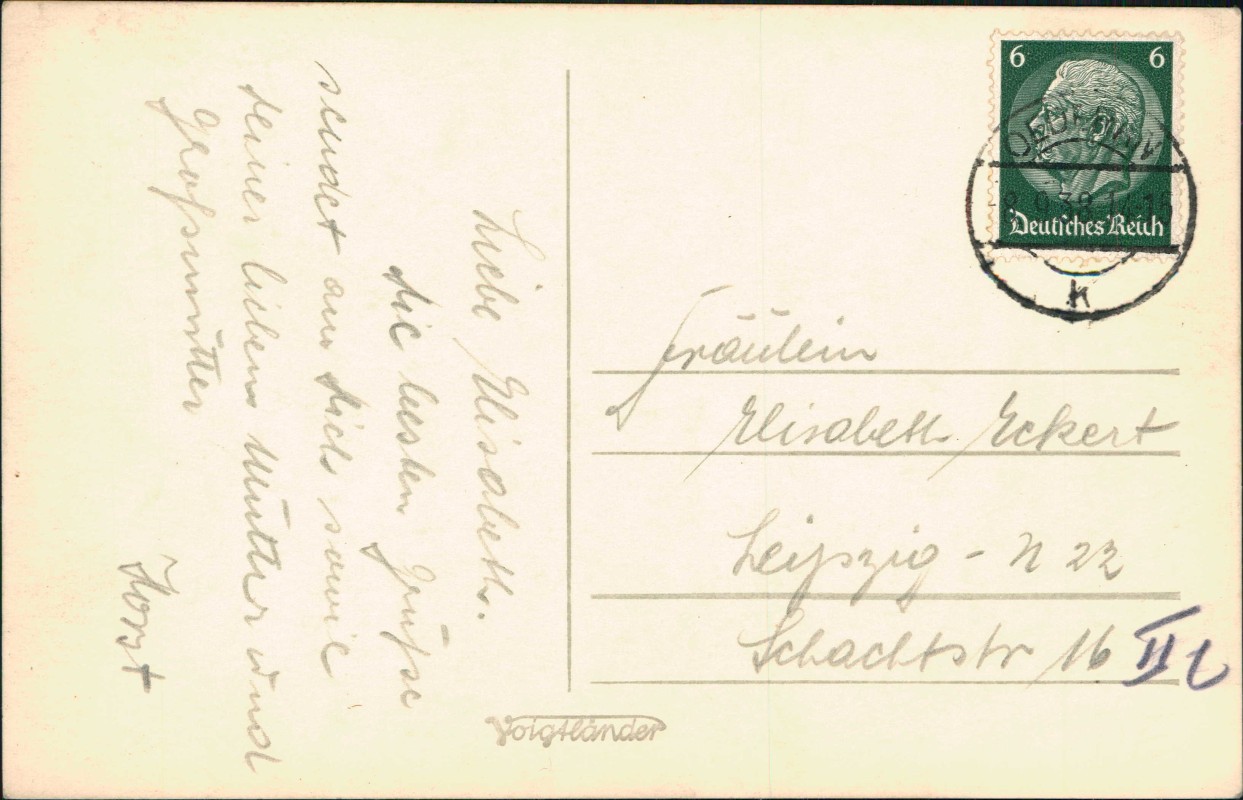 Liebe Elisabeth.
die besten Grüße
sendet an Dich sowie
deiner lieben Mutter und
Großmutter
Horst
6 6
Deutsches Reich
OEDERAN
-8.9.38.14-15
k
Fräulein
Elisabeth Eckert
Leipzig - N 22
Schachtstr 16 II l
Voigtländer